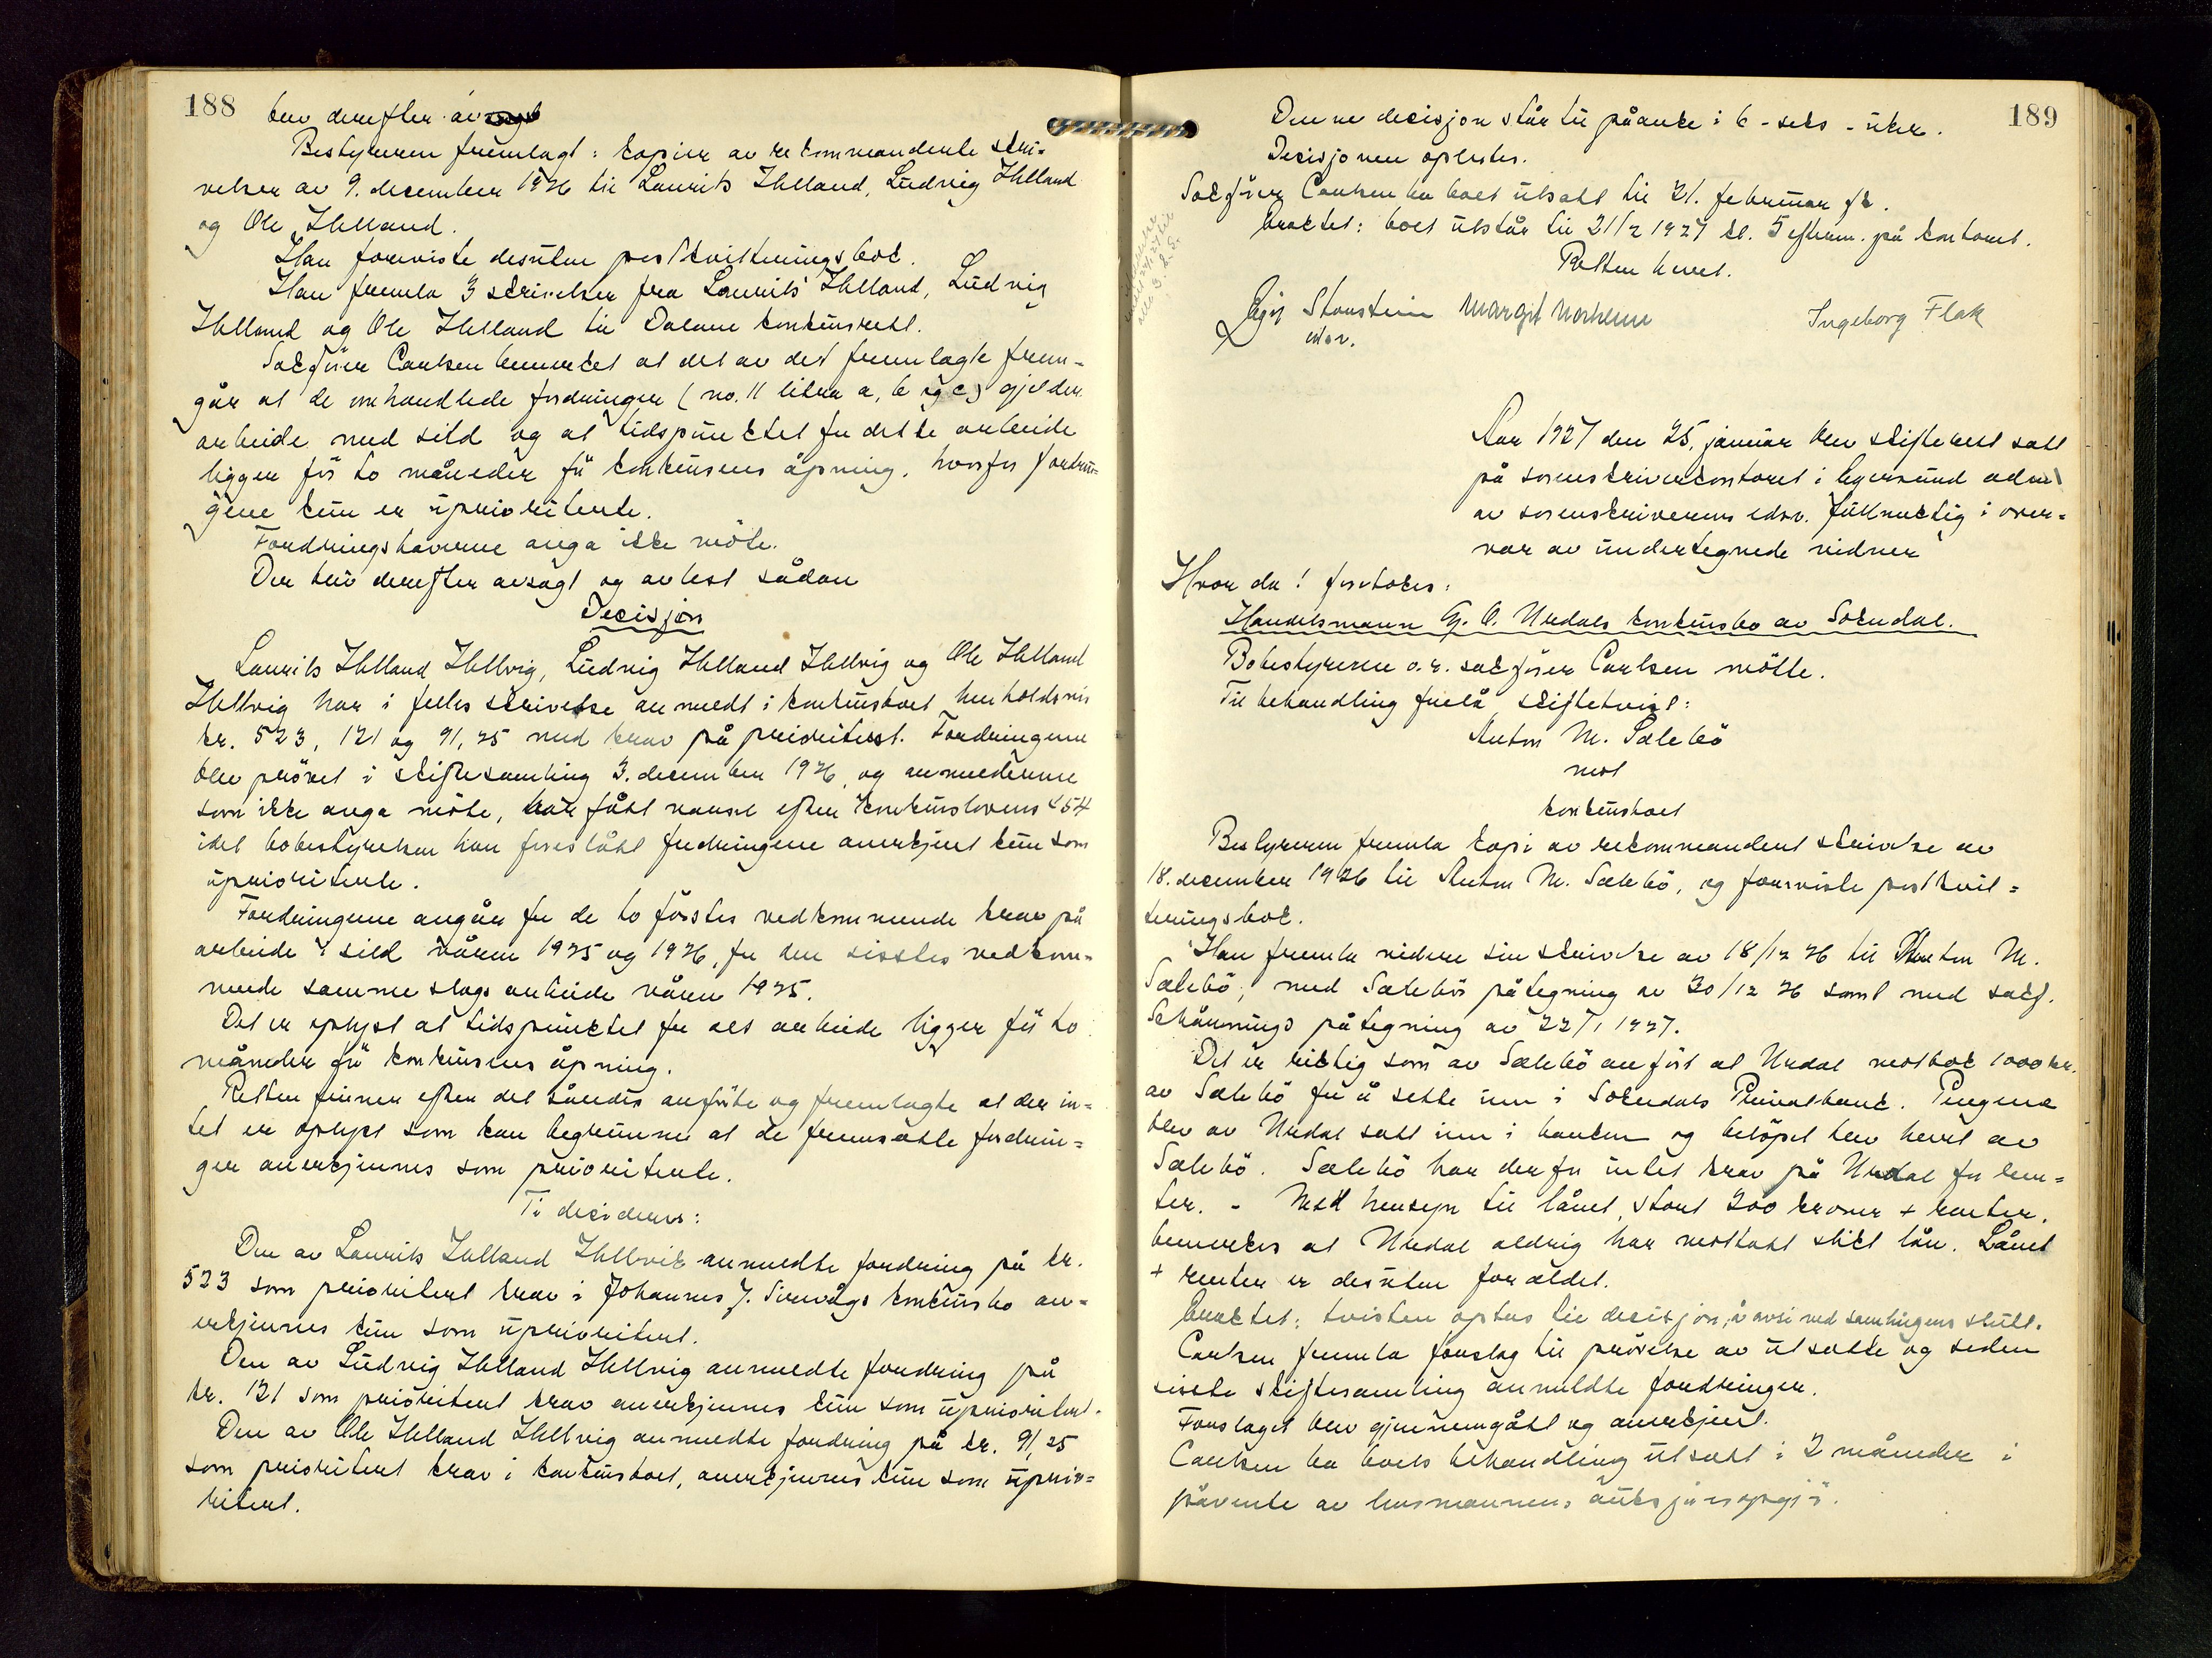 188
blev derefter av
Bestyreren fremlagt: kopier av rekommanderte skri-
velser av 9. december 1926 til Laurits Helland, Ludvig Helland
og Ole Helland.
Han foreviste desuten postkvitteringsbok.
Han fremla 3 skrivelser fra Laurits Helland, Ludvig
Helland og Ole Helland til Dalane konkursrett.
Sakfører Carlsen bemerket at det av det fremlagte frem-
går at de omhandlede fordringer (no. 11 litra a, b og c) gjelder
arbeide med sild og at tidspunktet for dette arbeide
ligger før to måneder før konkursens åpning, hvorfor fordrin-
gene kun er uprioriterte.
Fordringshaverne anga ikke møte.
Der blev derefter avsagt og avlest sådan
Decisjon
Laurits Helland Hellvig, Ludvig Helland Hellvig og Ole Helland
Hellvig har i felles skrivelse anmeldt i konkursboet henholdsvis
kr. 523, 121 og 91,25 med krav på prioritet. Fordringene
blev prøvet i skiftesamling 3. december 1926, og anmelderne
som ikke anga møte, har fått varsel efter konkurslovens § 54
idet bobestyrelsen har foreslått fordringene anerkjent kun som
uprioriterte.
Fordringene angår for de to førstes vedkommende krav på
arbeide i sild våren 1925 og 1926, for den sisstes vedkom-
mende samme slags arbeide våren 1925.
Det er oplyst at tidspunktet for alt arbeide ligger før to
måneder før konkursens åpning.
Retten finner efter det således anførte og fremlagte at der in-
tet er oplyst som kan begrunne at de fremsatte fordrin-
ger anerkjennes som prioriterte.
Ti decideres:
Den av Laurits Helland Hellvik anmeldte fordring på kr.
523 som prioritert krav i Johannes J. Sirevågs konkursbo an-
erkjennes kun som uprioritert.
Den av Ludvig Helland Hellvig anmeldte fordring på
kr. 121 som prioritert krav anerkjennes kun som uprioritert.
Den av Ole Helland Hellvig anmeldte fordring på kr. 91,25
som prioritert krav i konkursboet, anerkjennes kun som uprio-
ritert.
189
Denne decisjon står til påanke i 6 - seks - uker.
Decisjonen oplestes.
Sakfører Carlsen ba boet utsatt til 21. februar
braktet: boet utstår til 21/2 1927 kl. 5 efterm. på kontoret.
Retten hevet.
Stousteim Margit Ingeborg Flak
edsv.
Aar 1927 den 25. januar blev skifterett satt
på sorenskriverkontoret i Egersund adm.
av sorenskriverens edsv. fullmektig i over-
vær av undertegnede vidner
Hvor da! foretokes:
Handelsmann G. O. Urdals konkursbo av Sokndal.
Bobestyreren o.r. sakfører Carlsen møtte.
Til behandling forelå skiftetvist:
Anton M. Sælebø
mot
konkursboet
Bestyreren fremla kopi av rekommandert skrivelse av
18. december 1926 til Anton M. Sælebø, og foreviste postkvit-
teringsbok.
Han fremla videre sin skrivelse av 18/12 26 til Anton M.
Sælebø, med Sælebøs påtegning av 30/12 26 samt med sakf.
Schånnings påtegning av 22/1 1927.
Det er riktig som av Sælebø anført at Urdal mottok 1000 kr.
av Sælebø for å sette inn i Sokndals Privatbank. Pengene
blev av Urdal satt inn i banken og beløpet blev hevet av
Sælebø. Sælebø har derfor intet krav på Urdal for ren-
ter. - Med hensyn til lånet, stort 200 kroner + renter,
bemerkes at Urdal aldrig har mottatt slikt lån. Lånet
+ renter er desuten foreldet.
braktet: tvisten optas til decisjon, å avsi ved samlingens slutt.
Carlsen fremla forslag til prøvelse av utsatte og siden
sisste skiftesamling anmeldte fordringer.
Forslaget blev gjennemgått og anerkjent.
Carlsen ba boets behandling utsatt i 2 måneder i
påvente av lensmannens auksjonsopgjør.